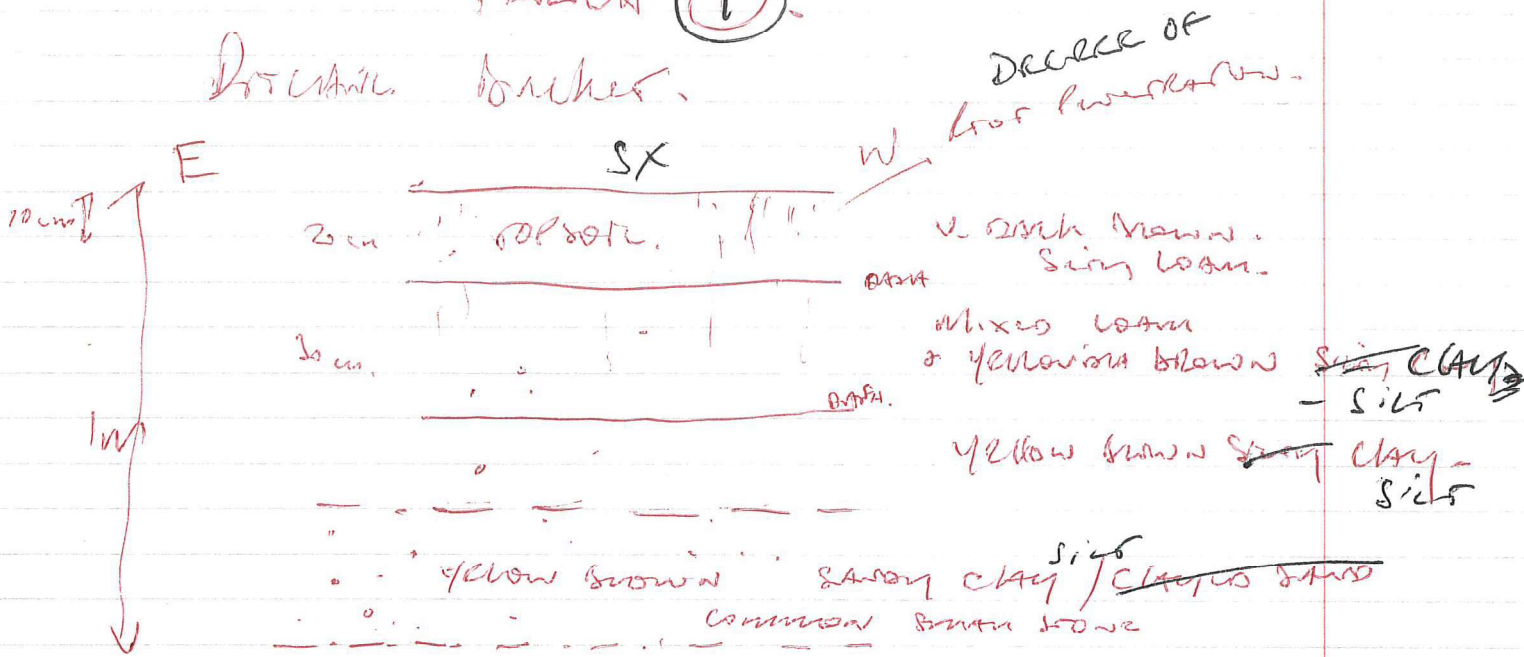 1
DEGREE OF
Root Penetration.
E
SX
W
10cm
20 cm
TOPSOIL.
V. DARK BROWN.
Silty LOAM.
MIXED LOAM
& YELLOWISH BROWN Silty CLAY
- SILT
30 cm.
1m
YELLOW BROWN Silty CLAY -
SILT
YELLOW BROWN SANDY CLAY SILT / CLAYED SAND
COMMON SMALL STONE